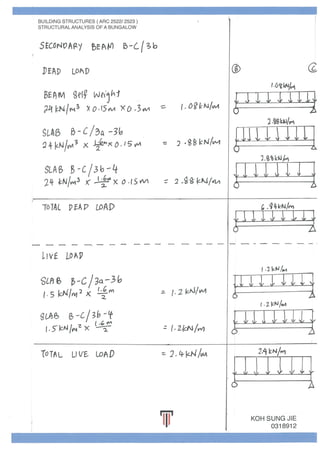 BUILDING STRUCTURES ( ARC 2522/ 2523 )
STRUCTURAL ANALYSIS OF A BUNGALOW
SECONDARY BEAM B-C/3b
DEAD LOAD
B C
BEAM Self Weight
24 kN/m³ x 0.15m x 0.3m = 1.08 kN/m
1.08 kN/m
SLAB B-C/3a-3b
24 kN/m³ x 1.6m/2 x 0.15m = 2.88 kN/m
2.88 kN/m
SLAB B-C/3b-4
24 kN/m³ x 1.6m/2 x 0.15m = 2.88 kN/m
2.88 kN/m
TOTAL DEAD LOAD
6.84 kN/m
LIVE LOAD
SLAB B-C/3a-3b
1.5 kN/m² x 1.6m/2 = 1.2 kN/m
1.2 kN/m
SLAB B-C/3b-4
1.5 kN/m² x 1.6m/2 = 1.2 kN/m
1.2 kN/m
TOTAL LIVE LOAD = 2.4 kN/m
2.4 kN/m
KOH SUNG JIE
0318912